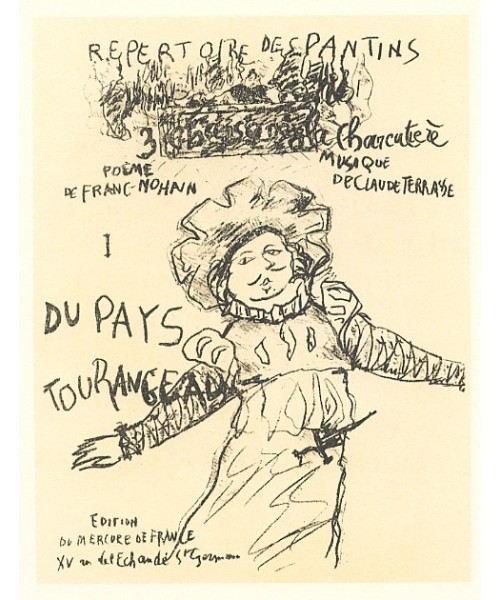 REPERTOIRE DES PANTINS
3 chansons à la Charcutière
POËME
DE FRANC-NOHAIN
MUSIQUE
DE CLAUDE TERRASSE
I
DU PAYS
TOURANGEAU
EDITION
DU MERCURE DE FRANCE
XV rue de l'Echaudé St Germain